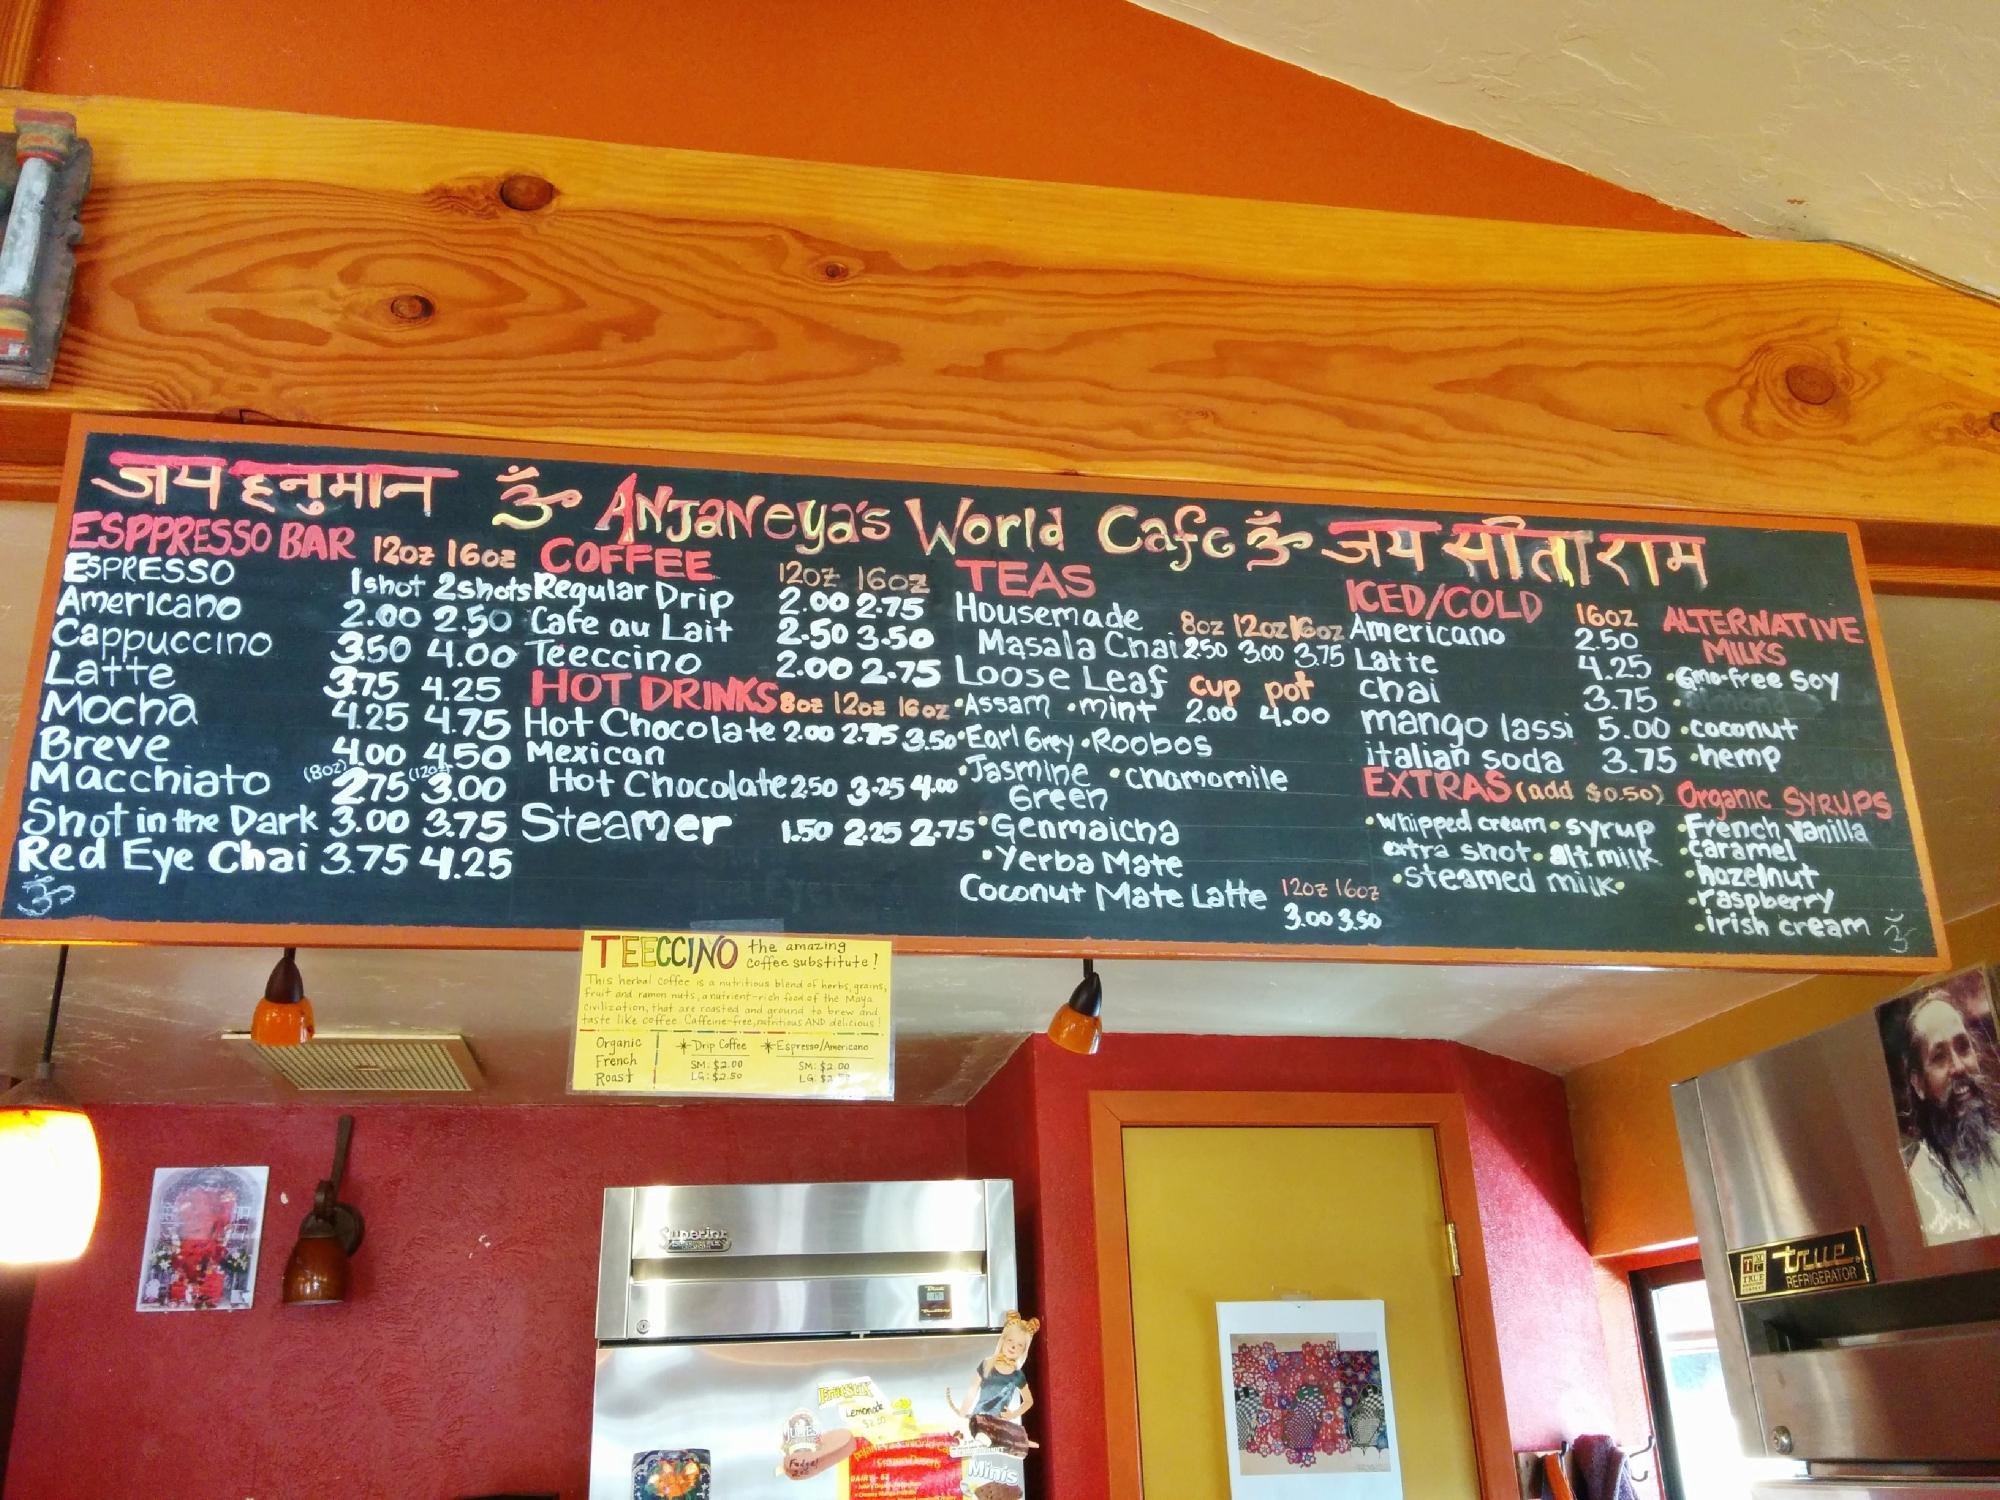 जय हनुमान ॐ ANJANeya's World Cafe ॐ जय सीताराम
ESPPRESSO BAR 12oz 16oz
ESPRESSO 1shot 2shots
Americano 2.00 2.50
Cappuccino 3.50 4.00
Latte 3.75 4.25
Mocha 4.25 4.75
Breve 4.00 4.50
Macchiato (8oz) 2.75 (12oz) 3.00
Shot in the Dark 3.00 3.75
Red Eye Chai 3.75 4.25
ॐ
COFFEE 12oz 16oz
Regular Drip 2.00 2.75
Cafe au Lait 2.50 3.50
Teeccino 2.00 2.75
HOT DRINKS 8oz 12oz 16oz
Hot Chocolate 2.00 2.75 3.50
Mexican
Hot Chocolate 2.50 3.25 4.00
Steamer 1.50 2.25 2.75
TEAS
Housemade 8oz 12oz 16oz
Masala Chai 2.50 3.00 3.75
Loose Leaf cup pot
•Assam •mint 2.00 4.00
•Earl Grey •Roobos
•Jasmine •chamomile
Green
•Genmaicha
•Yerba Mate
Coconut Mate Latte 12oz 16oz
3.00 3.50
ICED/COLD 16oz
Americano 2.50
Latte 4.25
chai 3.75
mango lassi 5.00
italian soda 3.75
EXTRAS (add $0.50)
•whipped cream •syrup
extra shot •alt. milk
•steamed milk•
ALTERNATIVE
MILKS
•Gmo-free soy
•almond
•coconut
•hemp
Organic SYRUPS
•French vanilla
•caramel
•hazelnut
•raspberry
•irish cream
ॐ
TEECCINO the amazing
coffee substitute!
This herbal coffee is a nutritious blend of herbs, grains,
fruit and ramon nuts, a nutrient-rich food of the Maya
civilization, that are roasted and ground to brew and
taste like coffee. Caffeine-free, nutritious AND delicious!
Organic
French
Roast
*Drip Coffee
SM: $2.00
LG: $2.50
*Espresso/Americano
SM: $2.00
LG: $2.50
Superior
true
REFRIGERATOR
TRUE
Lemonade
Fudge!
Minis